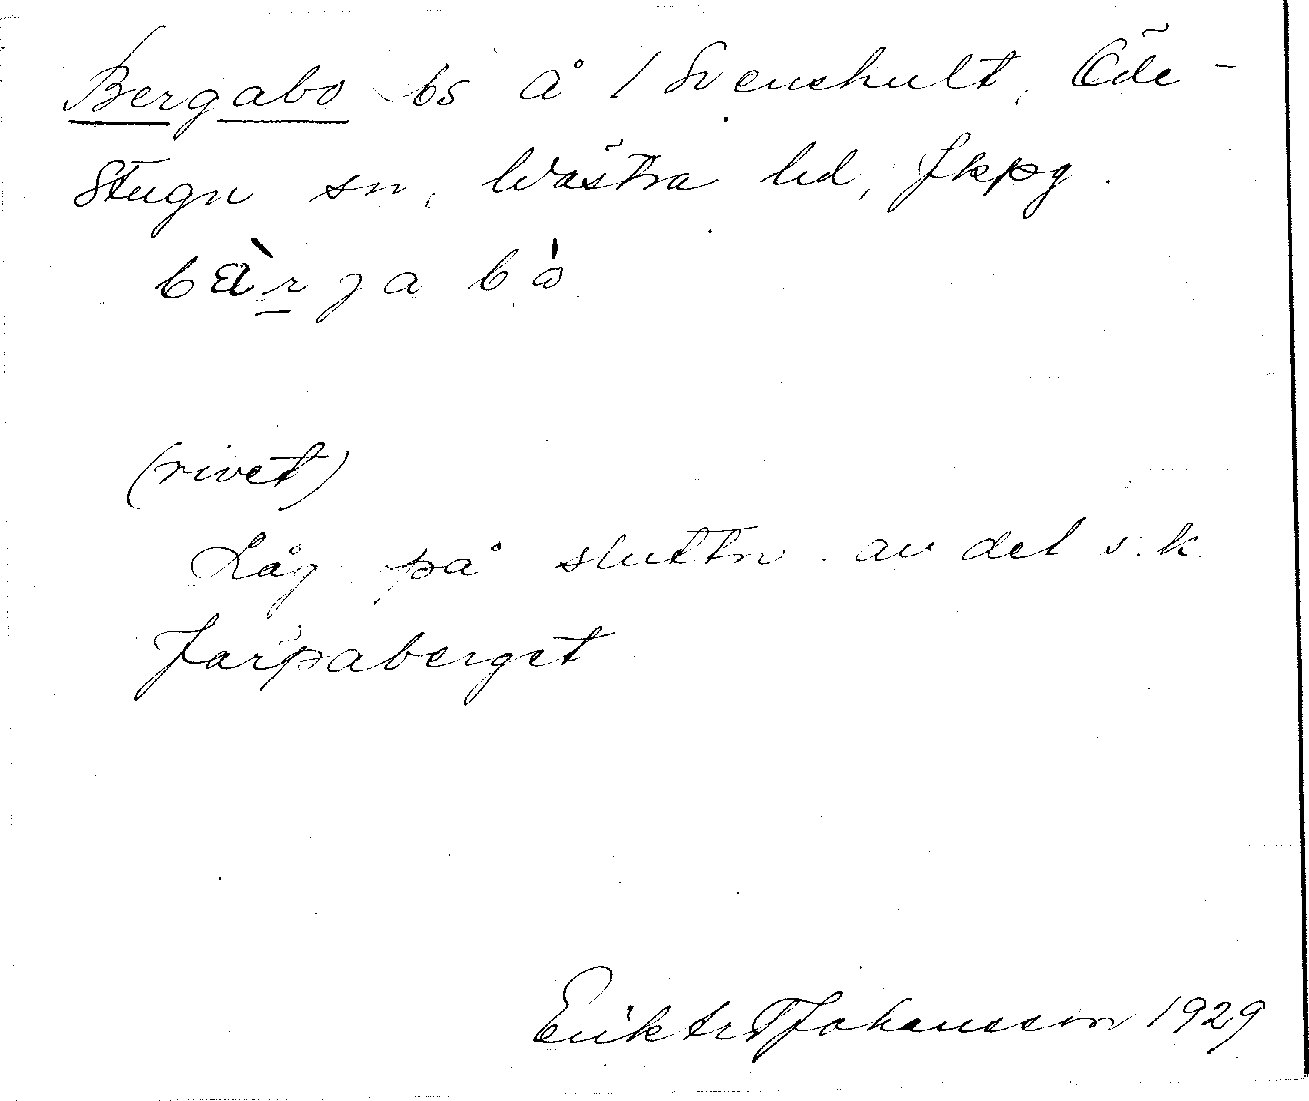 Bergabo bs å 1 Svenshult, Öde-
stugu sn, Västra hd, Jkpg.
bærgabo
(rivet)
Låg på sluttn. av det s.k.
Järpaberget
Johansson 1929